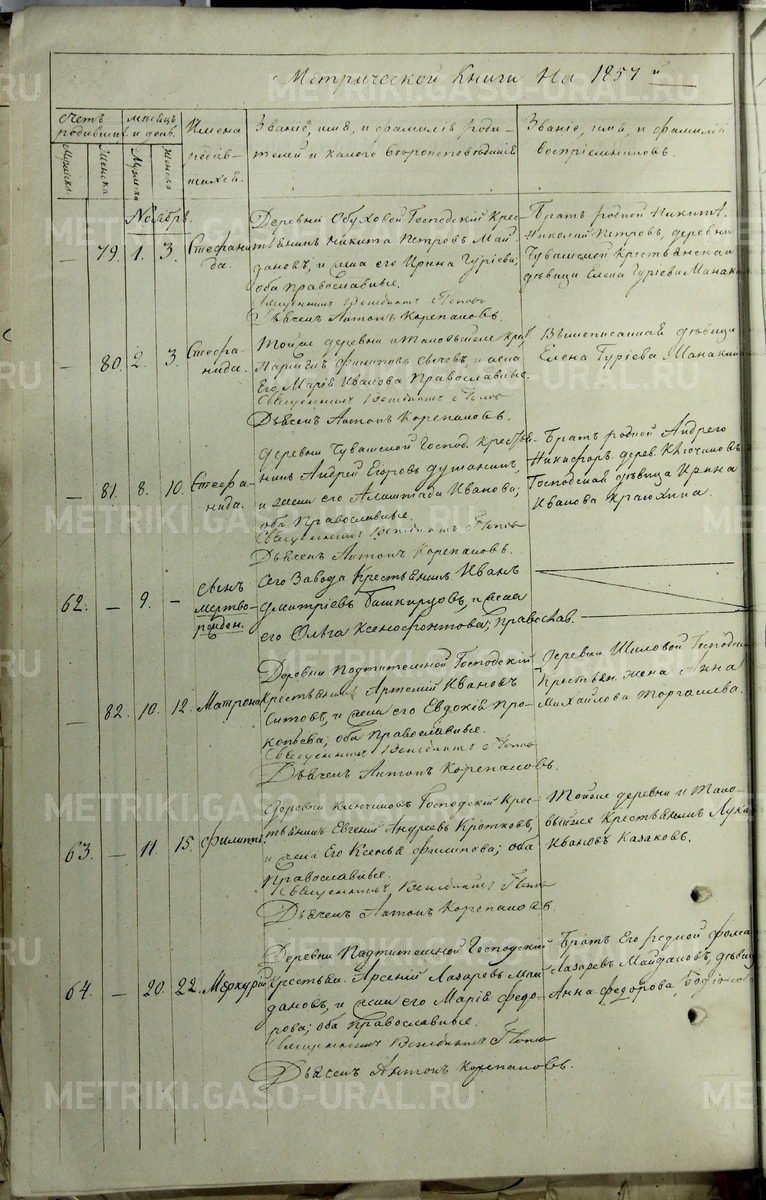 Метрической Книги На 1857 й
Счетъ родившихся
мѣсяцъ и день.
Имена родившихся.
Званіе, имя, и фамилія, родителей и какого вѣроисповѣданія
Званіе, имя, и фамилія воспріемниковъ.
Мужска. Женска Мужска Женска
Ноябрь.
— 79. 1. 3. Стефанида.
Деревни Обуховой Господскій Крес-
тьянинъ Никита Петровъ Май-
дановъ, и жена его Ирина Гуріева;
оба православные.
Священникъ Попов
Дьячекъ Антонъ Корепановъ.
Братъ родной Никиты
Николай Петровъ, деревни
Чувашской Крестьянская
дѣвица Елена Гуріева
— 80. 2. 3. Стефа-
нида.
Тойже деревни и таковыйже
Филиповъ и жена
Его Марія Иванова Православные.
Священникъ Попов
Дьячекъ Антонъ Корепановъ.
Вышеписанная дѣвица
Елена Гуріева
— 81. 8. 10. Стефа-
нида.
деревни Чувашской Господ. Кресть-
нинъ Андрей Егоровъ
и жена его Иванова;
оба Православные.
Священникъ Попов
Дьячекъ Антонъ Корепановъ.
Братъ родной Андрея
Никифоръ. дерев. Ключиковъ
Господская дѣвица Ирина
Иванова
62. — 9. — сынъ
мертво-
рожден.
Сего Завода Крестьянинъ Иванъ
Дмитріевъ Башкирцовъ, и жена
его Ольга Ксенофонтова; Православ.
— 82. 10. 12. Матрона
Деревни Подтительной Господскій
Крестьянинъ Артемій Ивановъ
и жена его Евдокія Про-
копьева; оба Православные.
Священникъ Попов
Дьячекъ Антонъ Корепановъ.
деревни Шиловой
Крестьян. жена Анна
Михайлова Торгашева.
63. — 11. 15. Филиппъ.
Деревни Ключиковъ Господскій Крес-
тьянинъ Евгеній Андреевъ Кротковъ,
и жена Его Ксенья Филипова; оба
Православные.
Священникъ Попов
Дьячекъ Антонъ Корепановъ.
Тойже деревни и тако-
выйже Крестьянинъ Лука
Ивановъ Казаковъ.
64. — 20. 22. Меркурій
Деревни Подтительной Господскій
Крестьян. Арсеній Лазаревъ Май-
дановъ, и жена его Марія Федо-
рова; оба Православные.
Священникъ Попов
Дьячекъ Антонъ Корепановъ.
Братъ Его родной Фома
Лазаревъ Майдановъ, дѣвица
Анна Федорова
METRIKI.GASO-URAL.RU